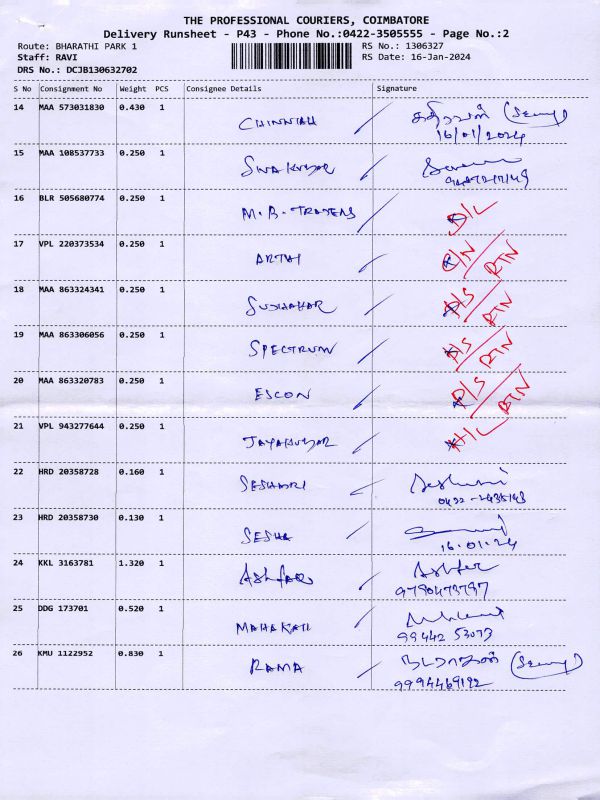 THE PROFESSIONAL COURIERS, COIMBATORE
Delivery Runsheet - P43 - Phone No.:0422-3505555 - Page No.:2
Route: BHARATHI PARK 1 RS No.: 1306327
Staff: RAVI RS Date: 16-Jan-2024
DRS No.: DCJB130632702
S No Consignment No Weight PCS Consignee Details Signature
14 MAA 573031830 0.430 1 CHINNIAH
16/01/2024
15 MAA 108537733 0.250 1 SIVAKUMAR
16 BLR 505680774 0.250 1 M.B. TRADERS D/L
17 VPL 220373534 0.250 1 ARTHI RTN
18 MAA 863324341 0.250 1 SUDHAHAR RTN
19 MAA 863306056 0.250 1 SPECTRUM RTN
20 MAA 863320783 0.250 1 ESCON P/S RTN
21 VPL 943277644 0.250 1 JAYAKUMAR
22 HRD 20358728 0.160 1 SESHADRI
23 HRD 20358730 0.130 1 SESHA
16.01.24
24 KKL 3163781 1.320 1 Ashfaq
25 DDG 173701 0.520 1 MAHAKALI
99442 53073
26 KMU 1122952 0.830 1 RAMA நடராஜன்
9994469192